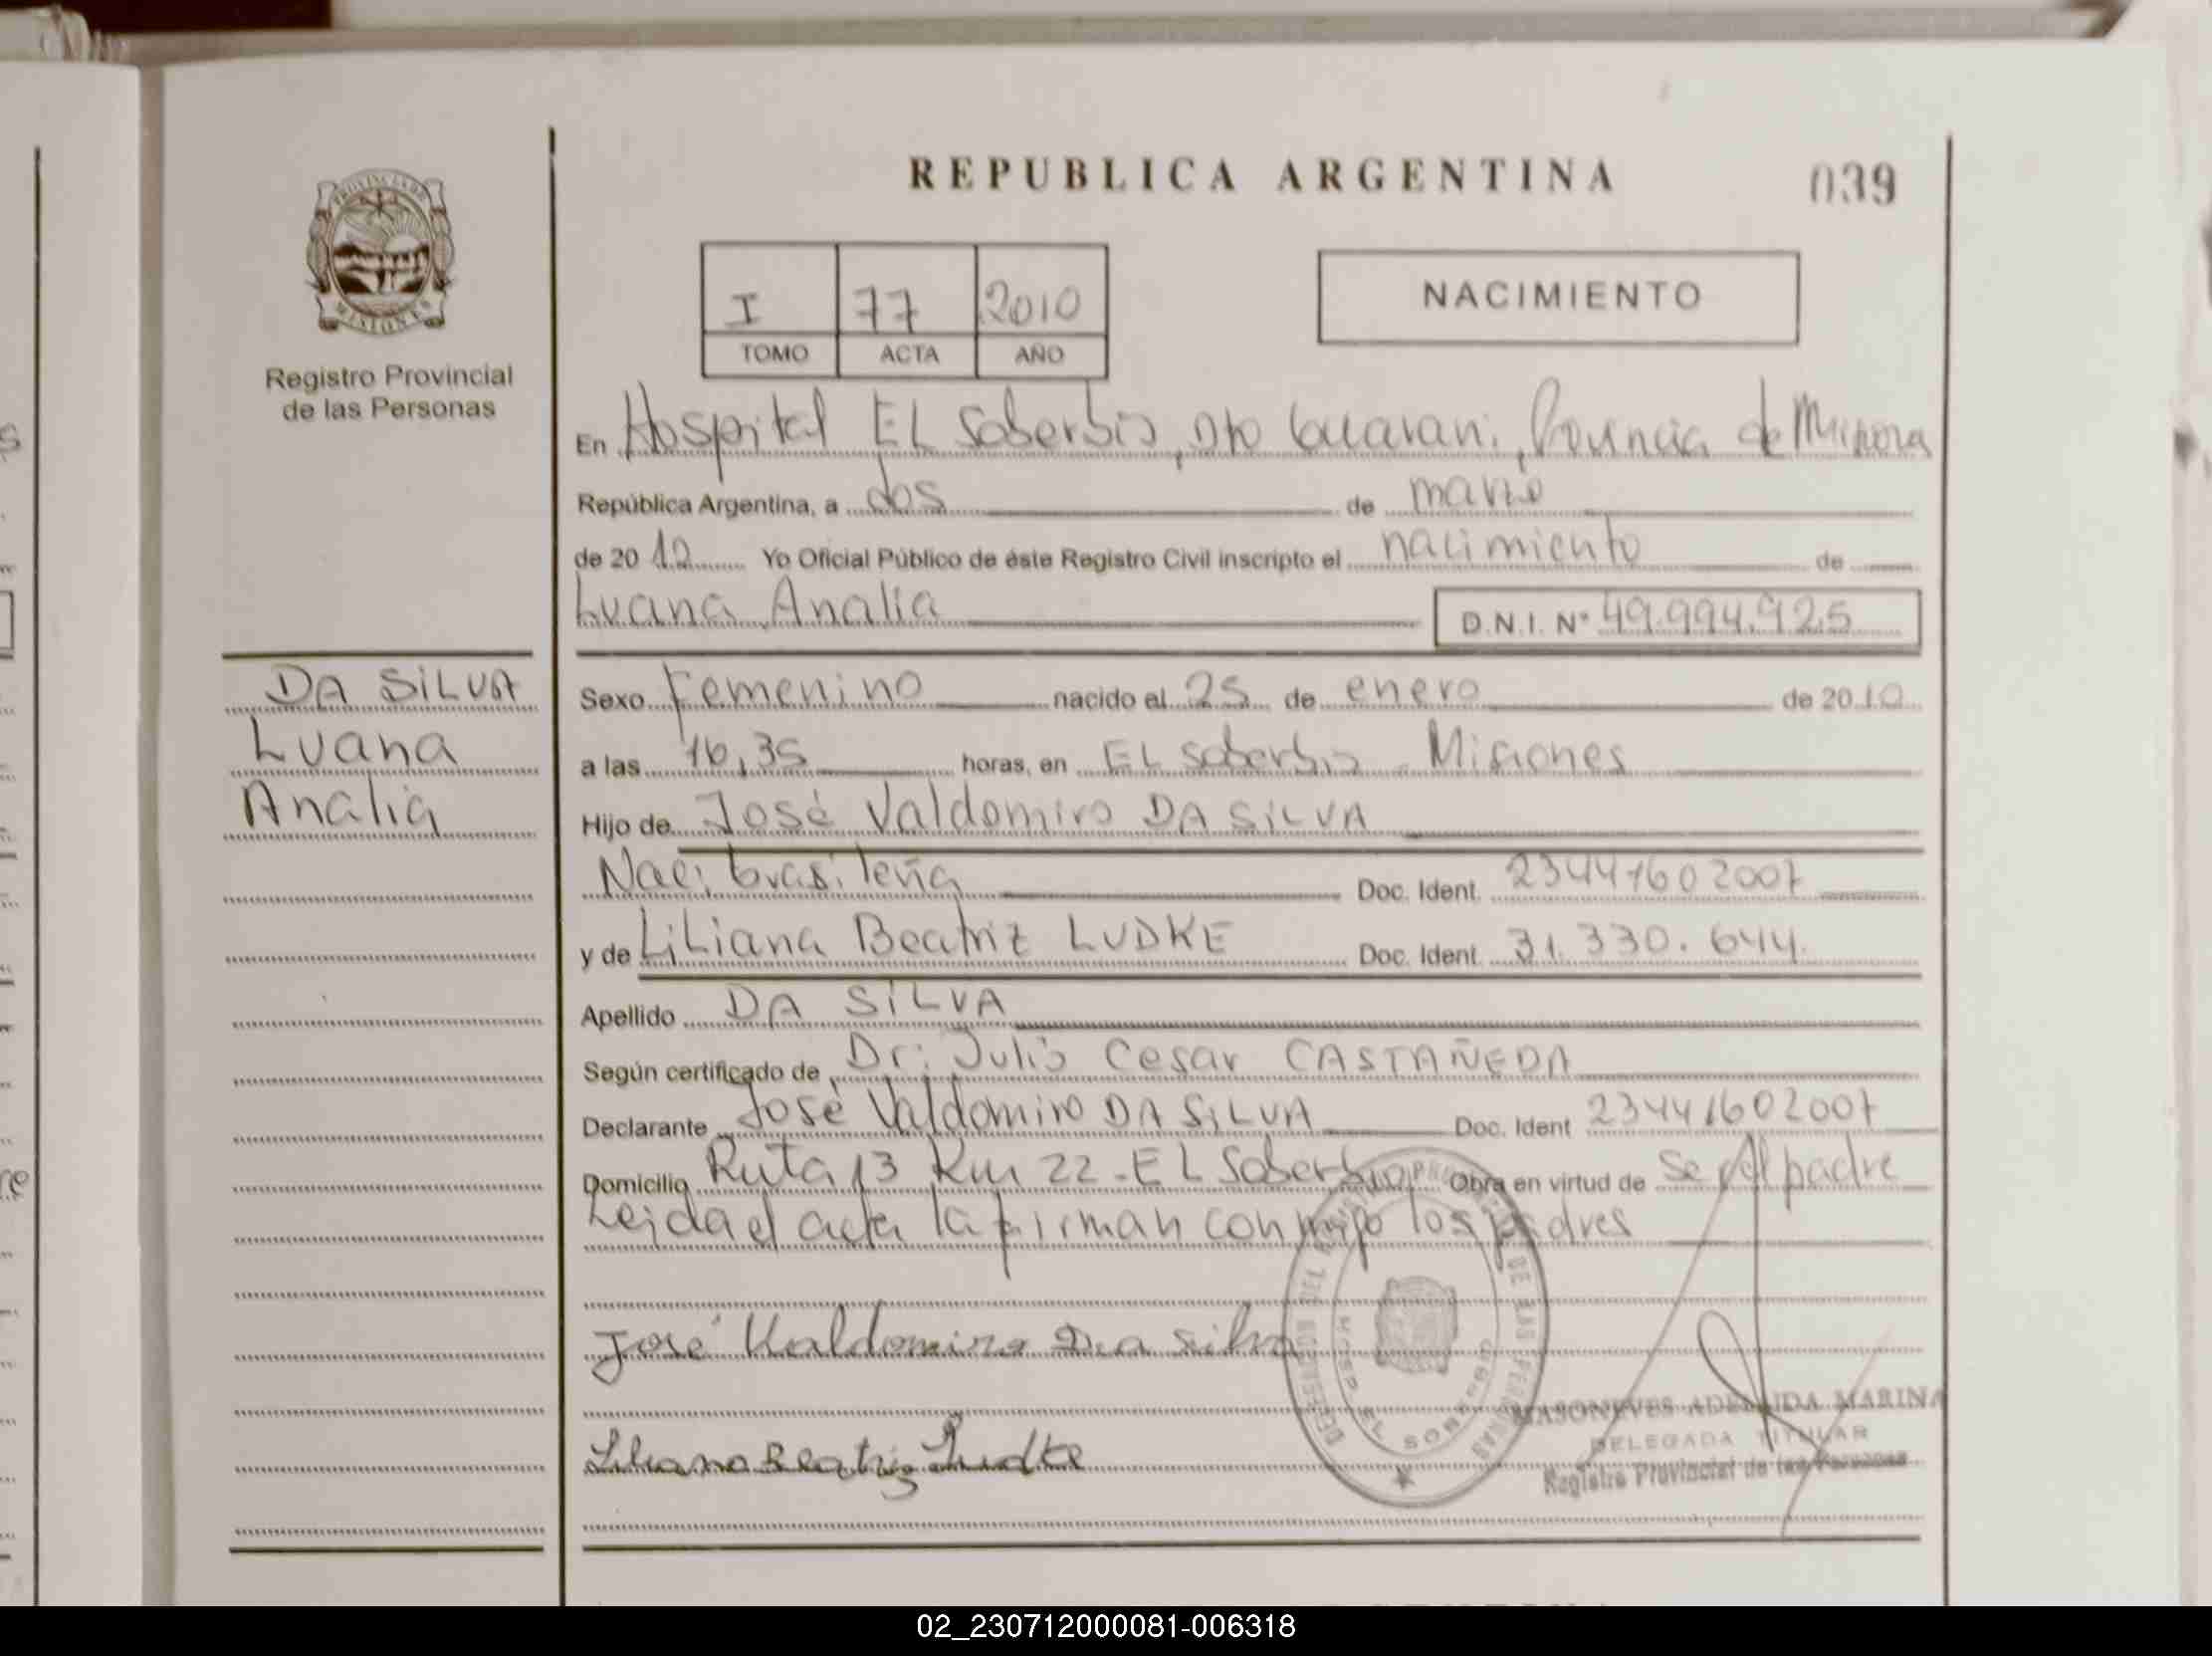 REPUBLICA ARGENTINA
039
PROVINCIA DE
MISIONES
Registro Provincial
de las Personas
I 77 2010
TOMO ACTA AÑO
NACIMIENTO
En Hospital EL Soberbio, Dto Guarani, Provincia de Misiones
República Argentina, a dos de marzo
de 2010 Yo Oficial Público de éste Registro Civil inscripto el nacimiento de
Luana Analia D.N.I. Nº 49.994.925
DA SILVA
Luana
Analia
Sexo Femenino nacido el 25 de enero de 2010
a las 16,35 horas, en EL Soberbio - Misiones
Hijo de José Valdomiro DA SILVA
Naci. brasileña Doc. Ident. 23441602007
y de Liliana Beatriz LUDKE Doc. Ident 31.330.644.
Apellido DA SILVA
Según certificado de Dr: Julio Cesar CASTAÑEDA
Declarante José Valdomiro DA SILVA Doc. Ident 23441602007
Domicilio Ruta 13 Km 22 - EL Soberbio Obra en virtud de ser el padre
Leida el acta la firman conmigo los padres
José Valdomiro Da Silva
Liliana Beatriz Ludke
DE LAS PERSONAS
HOSP EL SOBERBIO
MASONEVES ADELAIDA MARINA
DELEGADA TITULAR
Registro Provincial de las Personas
02_230712000081-006318